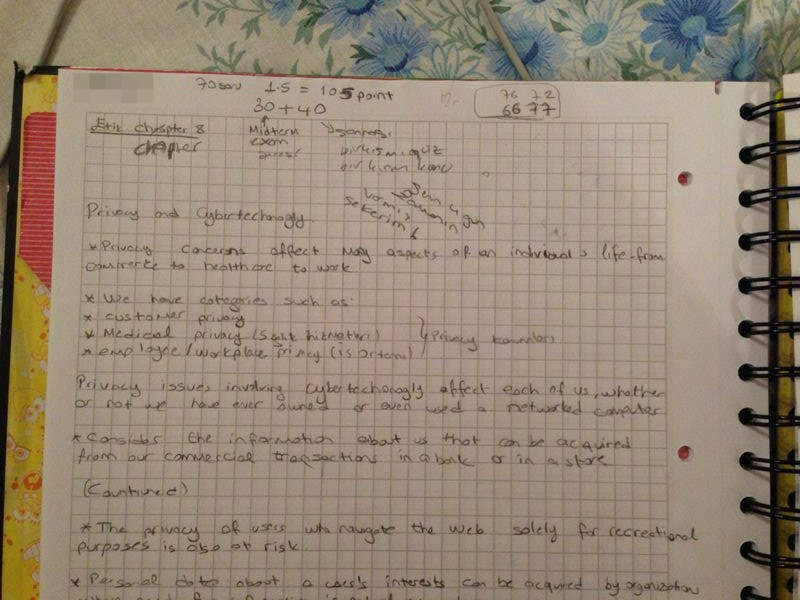 70 soru 1.5 = 105 point
30 + 40
76 72
66 77
Etik Chatspter 8
chapter
Midterm
exam
sonrası
birkısmı quiz
Privacy and Cybertechnogly
* Privacy concerns affect may aspects of an indivraual s life-from
commerce to healthcare to work
* We have categories such as:
* customer privacy
* Medical privacy (Sağlık hizmetleri)
* employee/workplace privacy (is ortamı)
Privacy
Privacy issues involving cybertechonogly affect each of us, whether
or not we have ever owned or even used a networked computer
* Consider the information about us that can be acquired
from our commercial transactions in a bank or in a store
(Countinued)
* The privacy of users who navigate the web solely for recreational
purposes is also at risk.
* Personal data about a user's interests can be acquired by organization